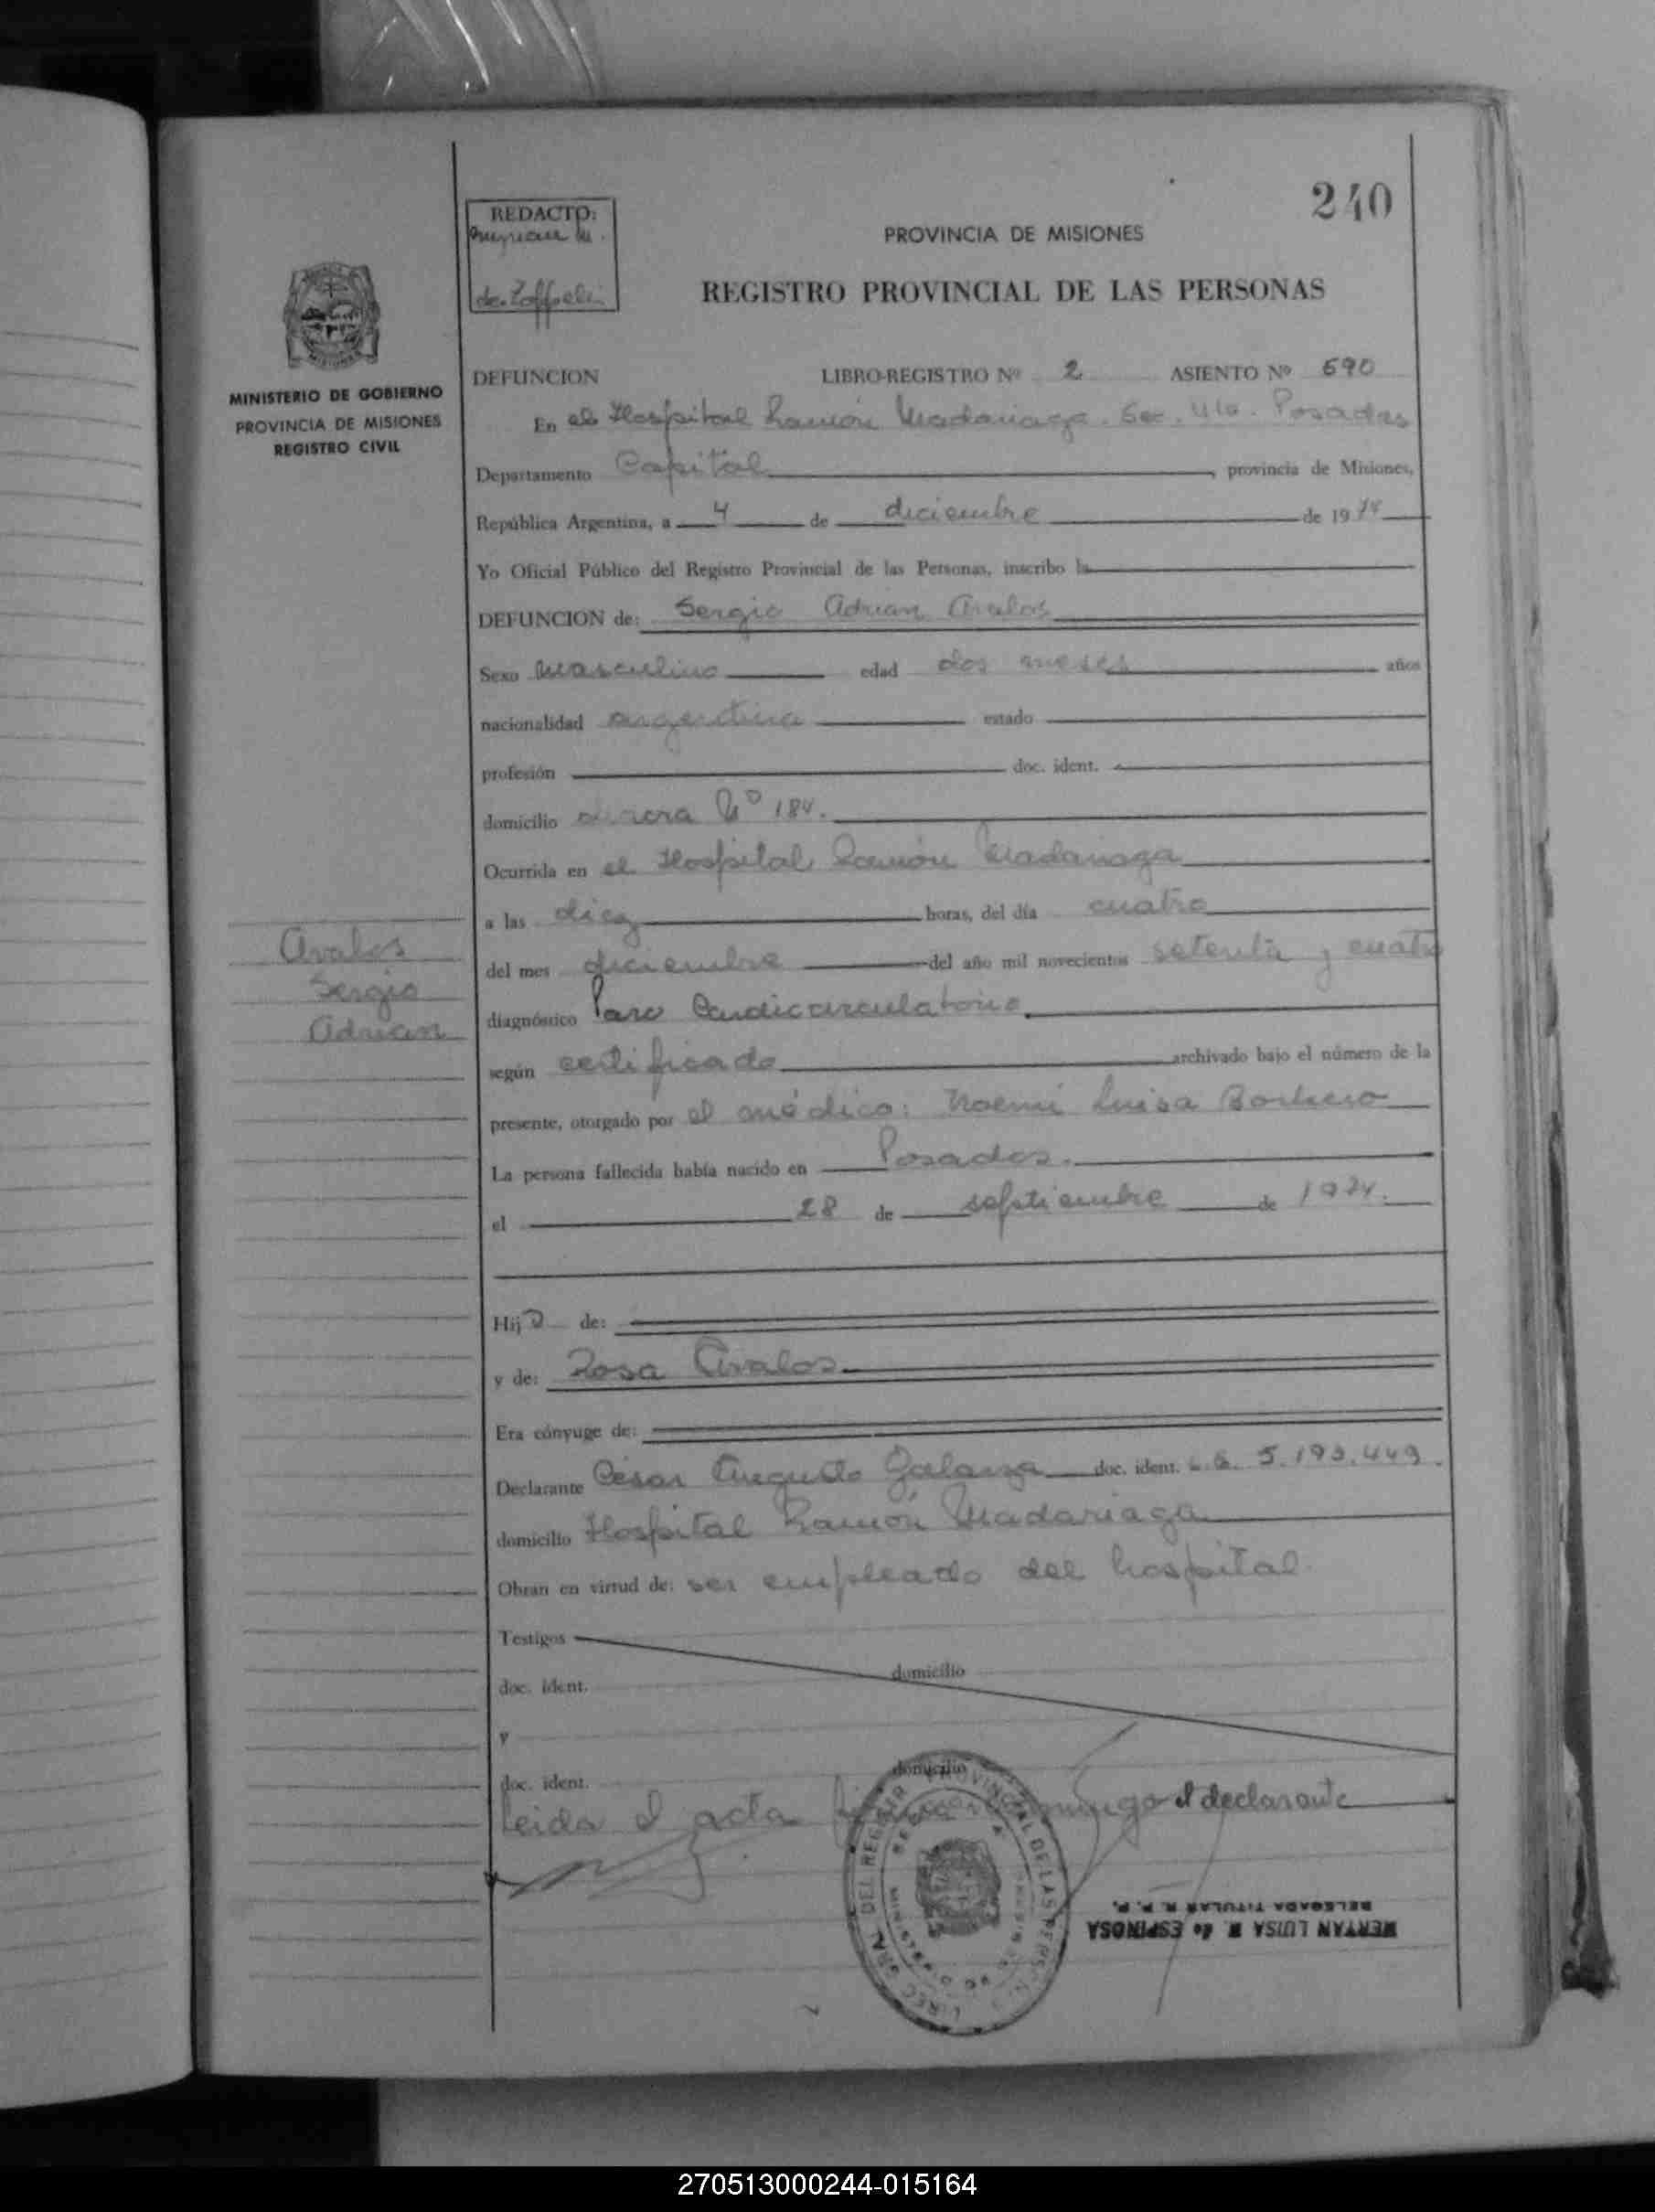 240
REDACTO:
de Zoffoli
PROVINCIA DE MISIONES
REGISTRO PROVINCIAL DE LAS PERSONAS
MINISTERIO DE GOBIERNO
PROVINCIA DE MISIONES
REGISTRO CIVIL
DEFUNCION LIBRO-REGISTRO Nº 2 ASIENTO Nº 690
En el Hospital Ramón Madariaga. Sec. 4ta. Posadas
Departamento Capital, provincia de Misiones,
República Argentina, a 4 de diciembre de 1974
Yo Oficial Público del Registro Provincial de las Personas, inscribo la
DEFUNCION de: Sergio Adrian Avalos
Sexo Masculino edad dos meses años
nacionalidad argentina estado
profesión doc. ident.
domicilio aurora Nº 184.
Ocurrida en el Hospital Ramón Madariaga
a las diez horas, del día cuatro
del mes diciembre del año mil novecientos setenta y cuatro
Avalos
Sergio
Adrian
diagnóstico Paro Cardiocirculatorio
según certificado archivado bajo el número de la
presente, otorgado por el médico: Noemi Luisa
La persona fallecida había nacido en Posadas.
el 28 de septiembre de 1974.
Hijo de:
y de: Rosa Avalos
Era cónyuge de:
Declarante César Augusto Galarza doc. ident. L.E. 5.193.449.
domicilio Hospital Ramón Madariaga
Obran en virtud de: ser empleado del hospital.
Testigos
domicilio
doc. ident.
y
domicilio
doc. ident.
Leida el acta firma conmigo el declarante
DIREC. GRAL. DEL REGISTR. PROVINCIAL DE LAS PERS.
WERTAN LUISA M de ESPINOSA
DELEGADA TITULAR R. P. P.
270513000244-015164